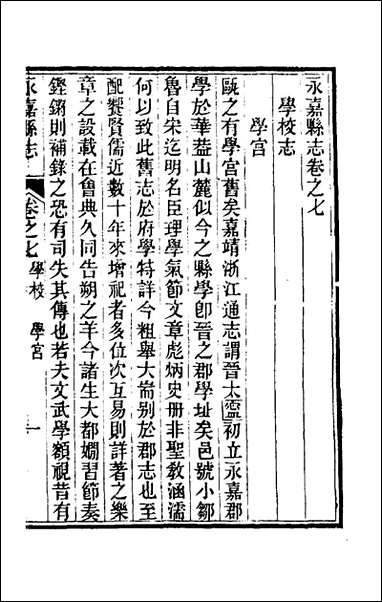 永嘉縣志卷之七
學校志
學宮
甌之有學宮舊矣嘉靖浙江通志謂晉太寧初立永嘉郡
學於華葢山麓似今之縣學卽晉之郡學址矣邑號小鄒
魯自宋迄明名臣理學氣節文章彪炳史册非聖敎涵濡
何以致此舊志於府學特詳今粗舉大耑别於郡志也至
配饗賢儒近數十年來增祀者多位次互易則詳著之樂
章之設載在魯典久同告朔之羊今諸生大都嫺習節奏
鏗鏘則補錄之恐有司失其傳也若夫文武學額視昔有
永嘉縣志
卷之七 學校 學宮
一